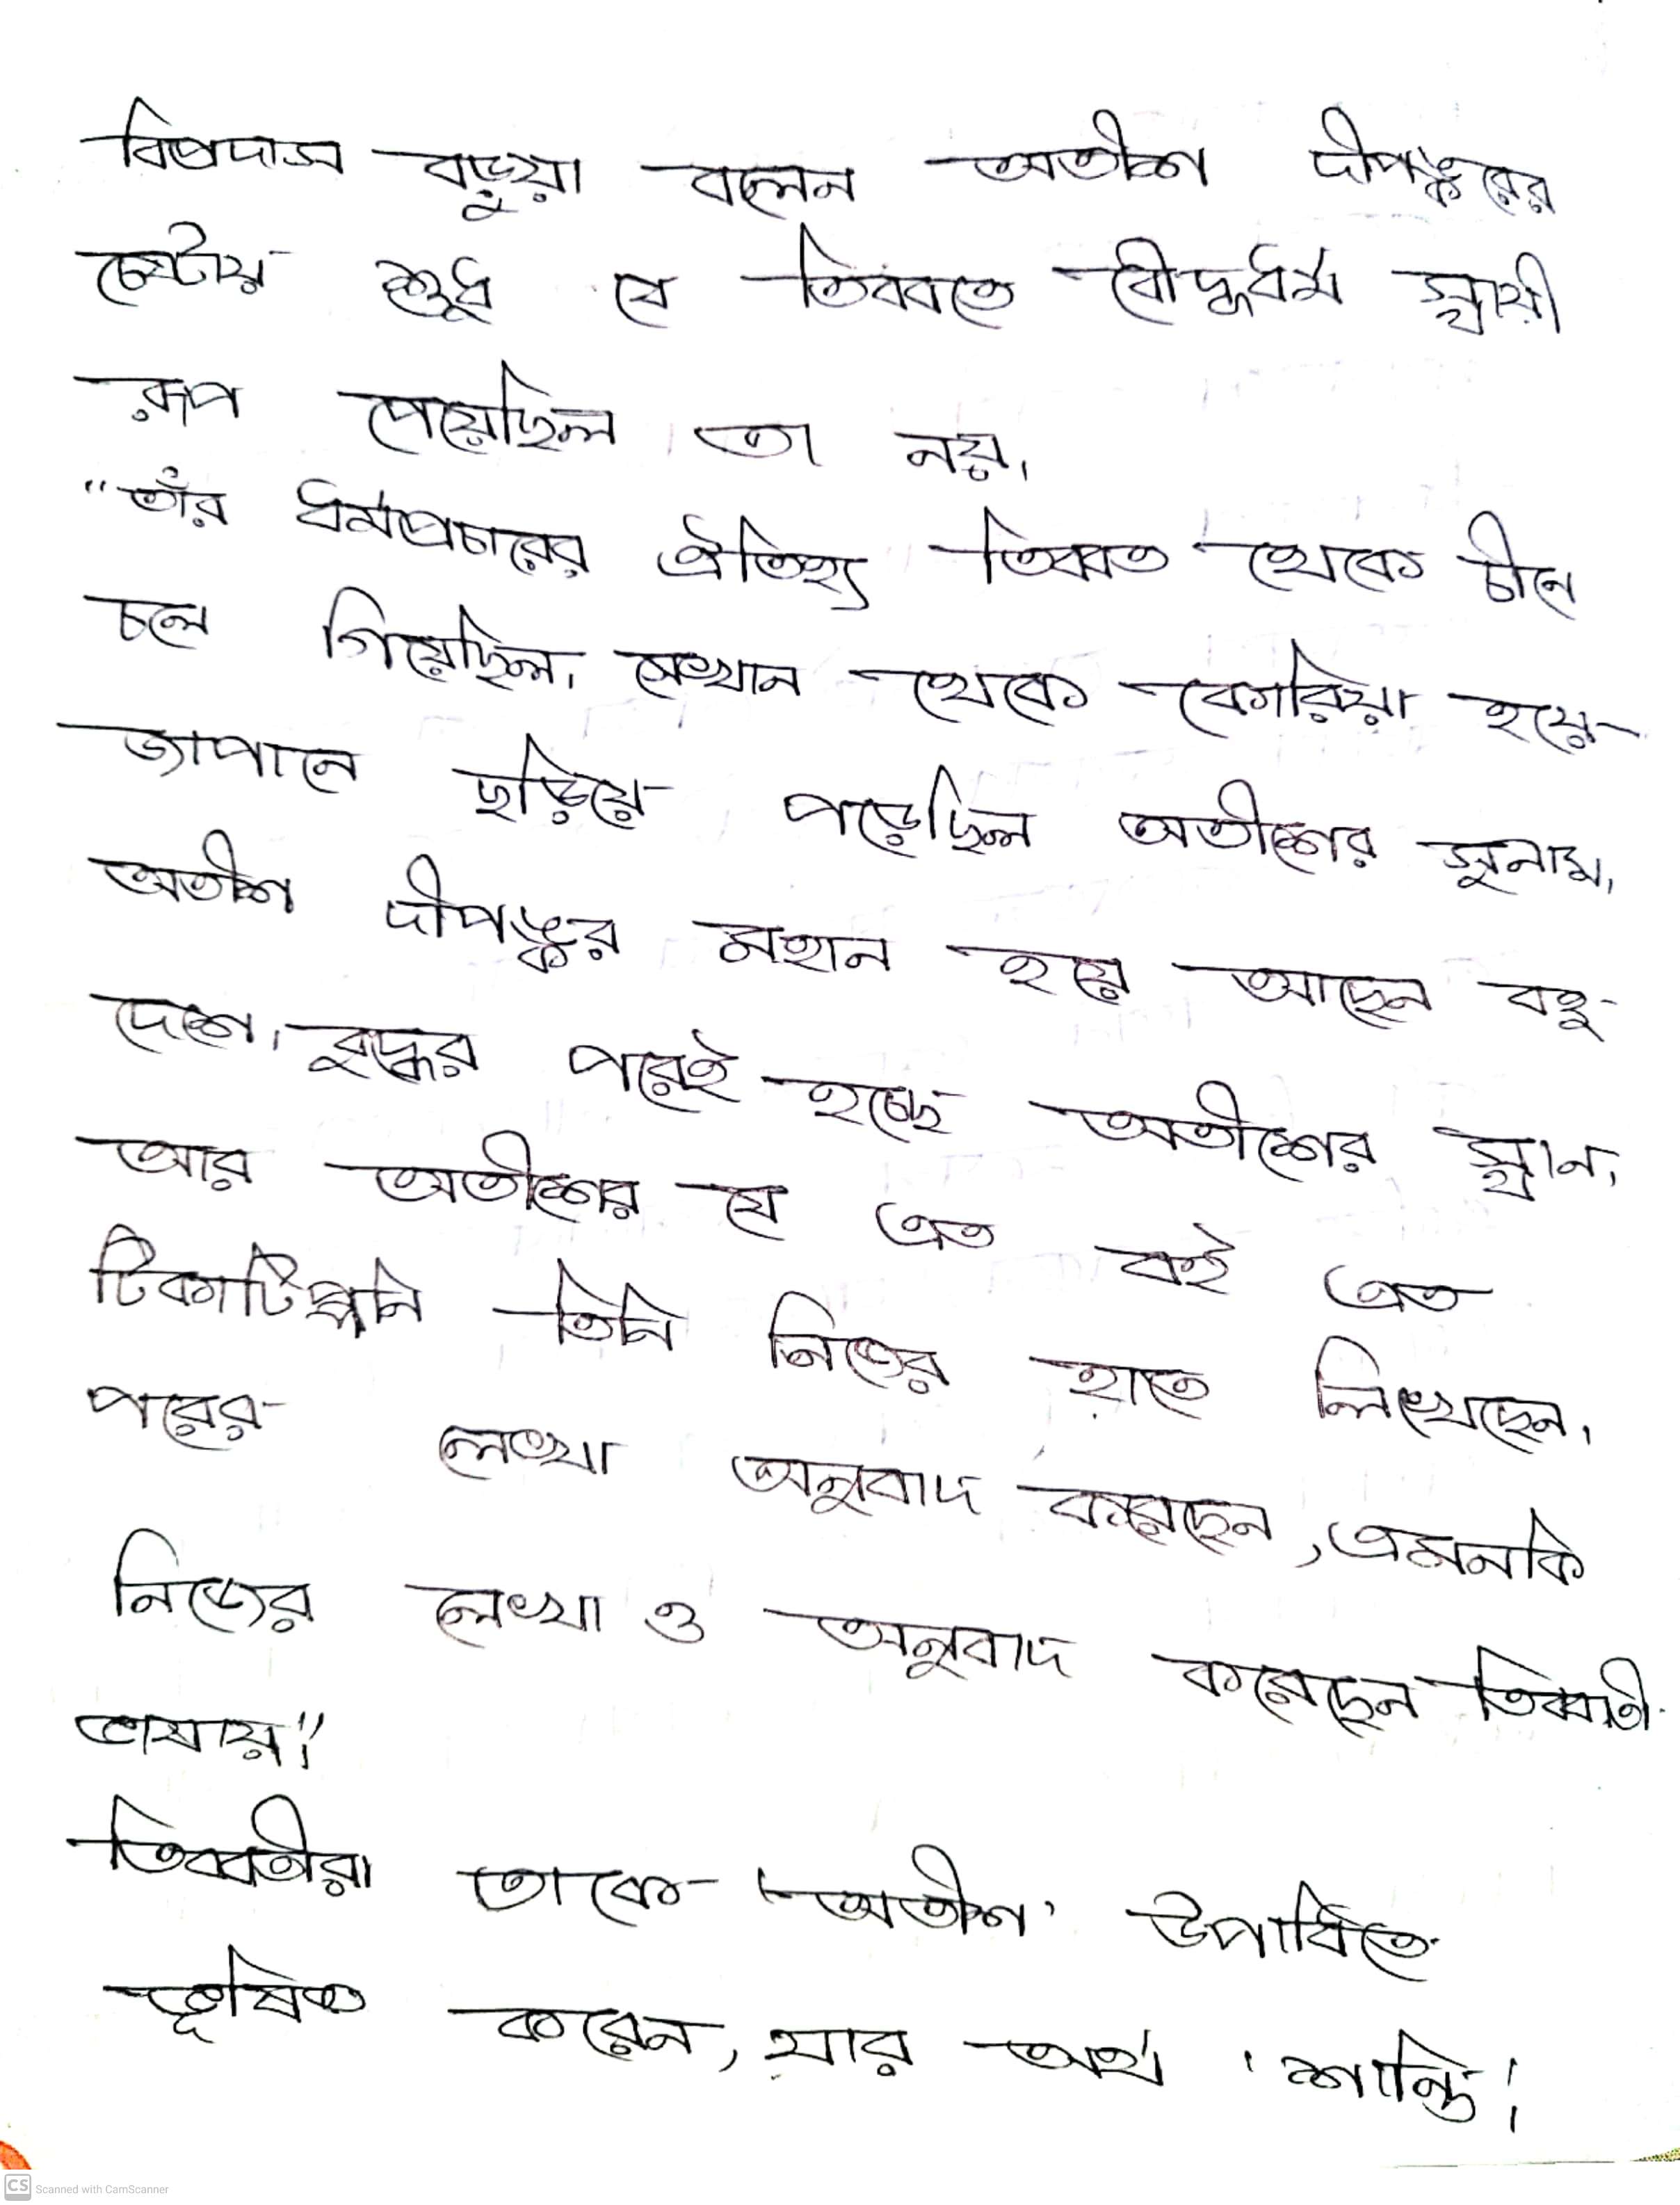 বিপ্রদাস বড়ুয়া বলেন অতীশ দীপঙ্করের
চেষ্টায় শুধু যে তিব্বতে বৌদ্ধধর্ম স্থায়ী
রূপ পেয়েছিল তা নয়।
"তাঁর ধর্মপ্রচারের ঐতিহ্য তিব্বত থেকে চীনে
চলে গিয়েছিল। সেখান থেকে কোরিয়া হয়ে
জাপানে ছড়িয়ে পড়েছিল অতীশের সুনাম।
অতীশ দীপঙ্কর মহান হয়ে আছেন বহু
দেশে। বুদ্ধের পরেই হচ্ছে অতীশের স্থান।
আর অতীশের যে এত বই এত
টিকাটিপ্পনি তিনি নিজের হাতে লিখেছেন।
পরের লেখা অনুবাদ করেছেন, এমনকি
নিজের লেখা ও অনুবাদ করেছেন তিব্বতী
ভাষায়।"
তিব্বতীরা তাকে 'অতীশ' উপাধিতে
ভূষিত করেন, যার অর্থ 'শান্তি'।
CS Scanned with CamScanner